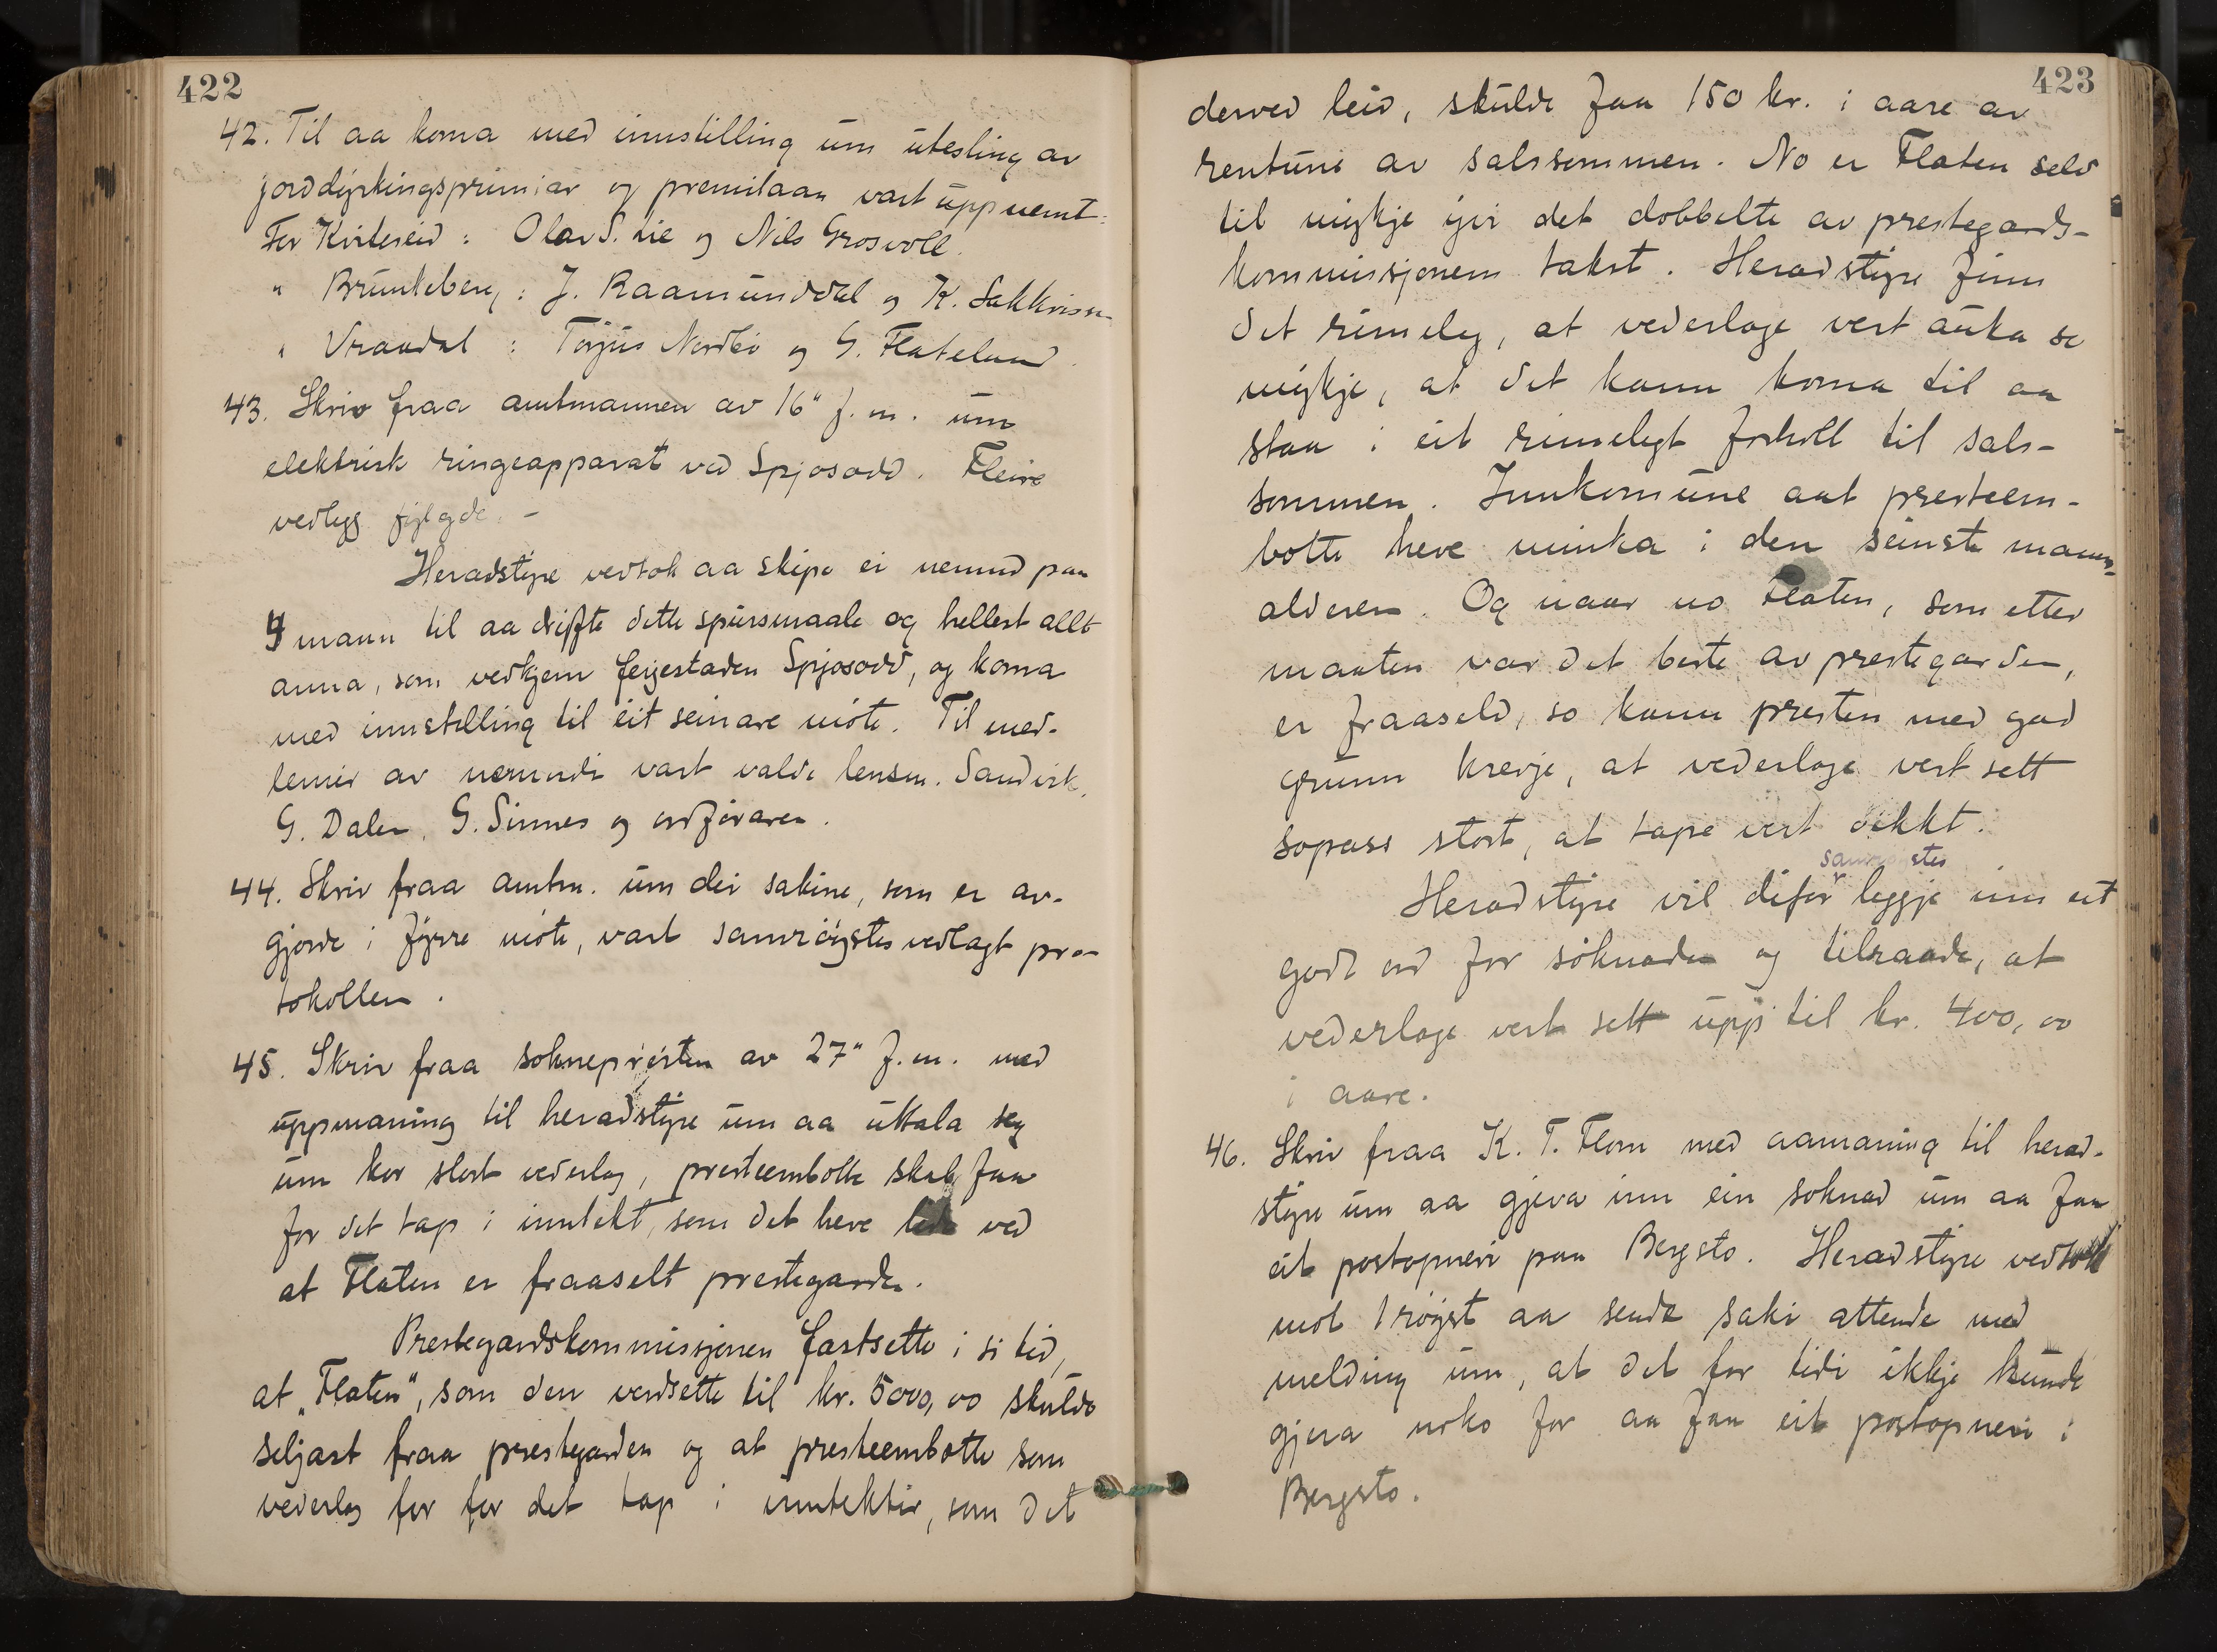 422
42. Til aa koma med innstilling um utesling av
jorddyrkingspremiar og premilaan vart uppnemt:
For Kviteseid: Olav S. Lie og Nils Grosvoll.
" Brunkeberg: J. Raamunddal og K. Sakkrisn
" Vraadal: Torjus Nordbö og G. Flateland.
43. Skriv fraa amtmannen av 16" f. m. um
elektrisk ringeapparat ved Spjosodd. Fleire
vedlegg fylgde. -
Heradstyre vedtok aa skipa ei nemnd paa
4 mann til aa drifte dette spursmaale og hellest allt
anna, som vedkjem ferjestaden Spjosodd, og koma
med innstelling til eit seinare möte. Til med-
lemir av nemndi vart valde lensm. Sandvik,
G. Dalen, G. Sinnes og ordföraren.
44. Skriv fraa amtm. um dei sakine, som er av-
gjorde i fyrre möte, vart samröystes vedlagt pro-
tokollen.
45. Skriv fraa soknepresten av 27" f. m. med
uppmaning til heradstyre um aa uttala seg
um kor stort vederlag, presteembotte skal faa
for det tap i inntekt, som det heve lide ved
at Flaten er fraaselt prestegarden.
Prestegardskommissjonen fastsette i si tid,
at "Flaten", som den verdsette til kr. 5000,00 skulde
seljast fraa prestegarden og at presteembotte som
vederlag for for det tap i inntektir, som det
423
derved leid, skulde faa 150 kr. i aare av
rentune av salssommen. No er Flaten seld
til mykje yvi det dobbelte av prestegards-
kommissjonens takst. Heradstyre finn
det rimeleg, at vederlage vert auka so
mykje, at det kann koma til aa
staa i eit rimelegt forholl til sals-
sommen. Innkomune aat presteem-
botte heve minka i den seinste manns-
alderen. Og naar no Flaten, som etter
maaten var det beste av prestegarden,
er fraaseld, so kann presten med god
grunn krevja, at vederlage vert sett
sopass stort, at tape vert dekkt.
samröystes
Heradstyre vil difor leggje inn eit
godt ord for söknaden og tilraade, at
vederlage vert sett upp til kr. 400,00
i aare.
46. Skriv fraa K. T. Flom med aamaning til herad-
styre um aa gjeva inn ein soknad um aa faa
eit postopneri paa Bergsto. Heradstyre vedtok
mot 1 röyst aa senda saki attende med
melding um, at det for tidi ikkje kunde
gjera noko for aa faa eit postopneri i
Bergsto.